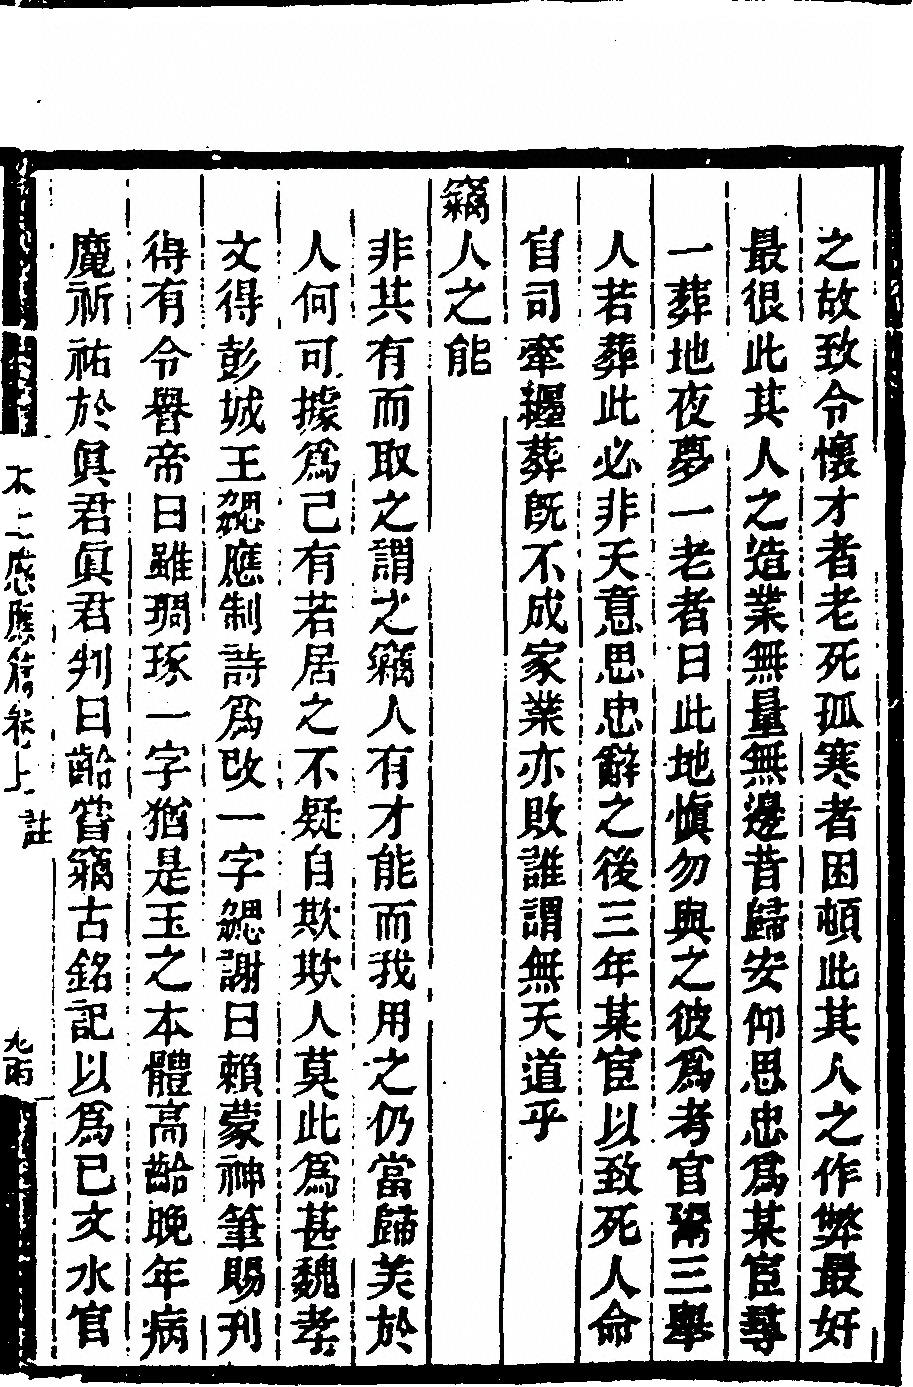 之故致令懷才者老死孤寒者困頓此其人之作弊最奸
最很此其人之造業無量無邊昔歸安仰思忠爲某宦尋
一葬地夜夢一老者曰此地愼勿與之彼爲考官鬻三舉
人若葬此必非天意思忠辭之後三年某宦以致死人命
官司牽纏葬旣不成家業亦敗誰謂無天道乎
竊人之能
非其有而取之謂之竊人有才能而我用之仍當歸美於
人何可據爲己有若居之不疑自欺欺人莫此爲甚魏孝
文得彭城王勰應制詩爲改一字勰謝曰賴蒙神筆賜刊
得有令譽帝曰雖琱琢一字猶是玉之本體高齡晚年病
魔祈祐於眞君眞君判曰齡嘗竊古銘記以爲己文水官
太上感應篇卷上 註